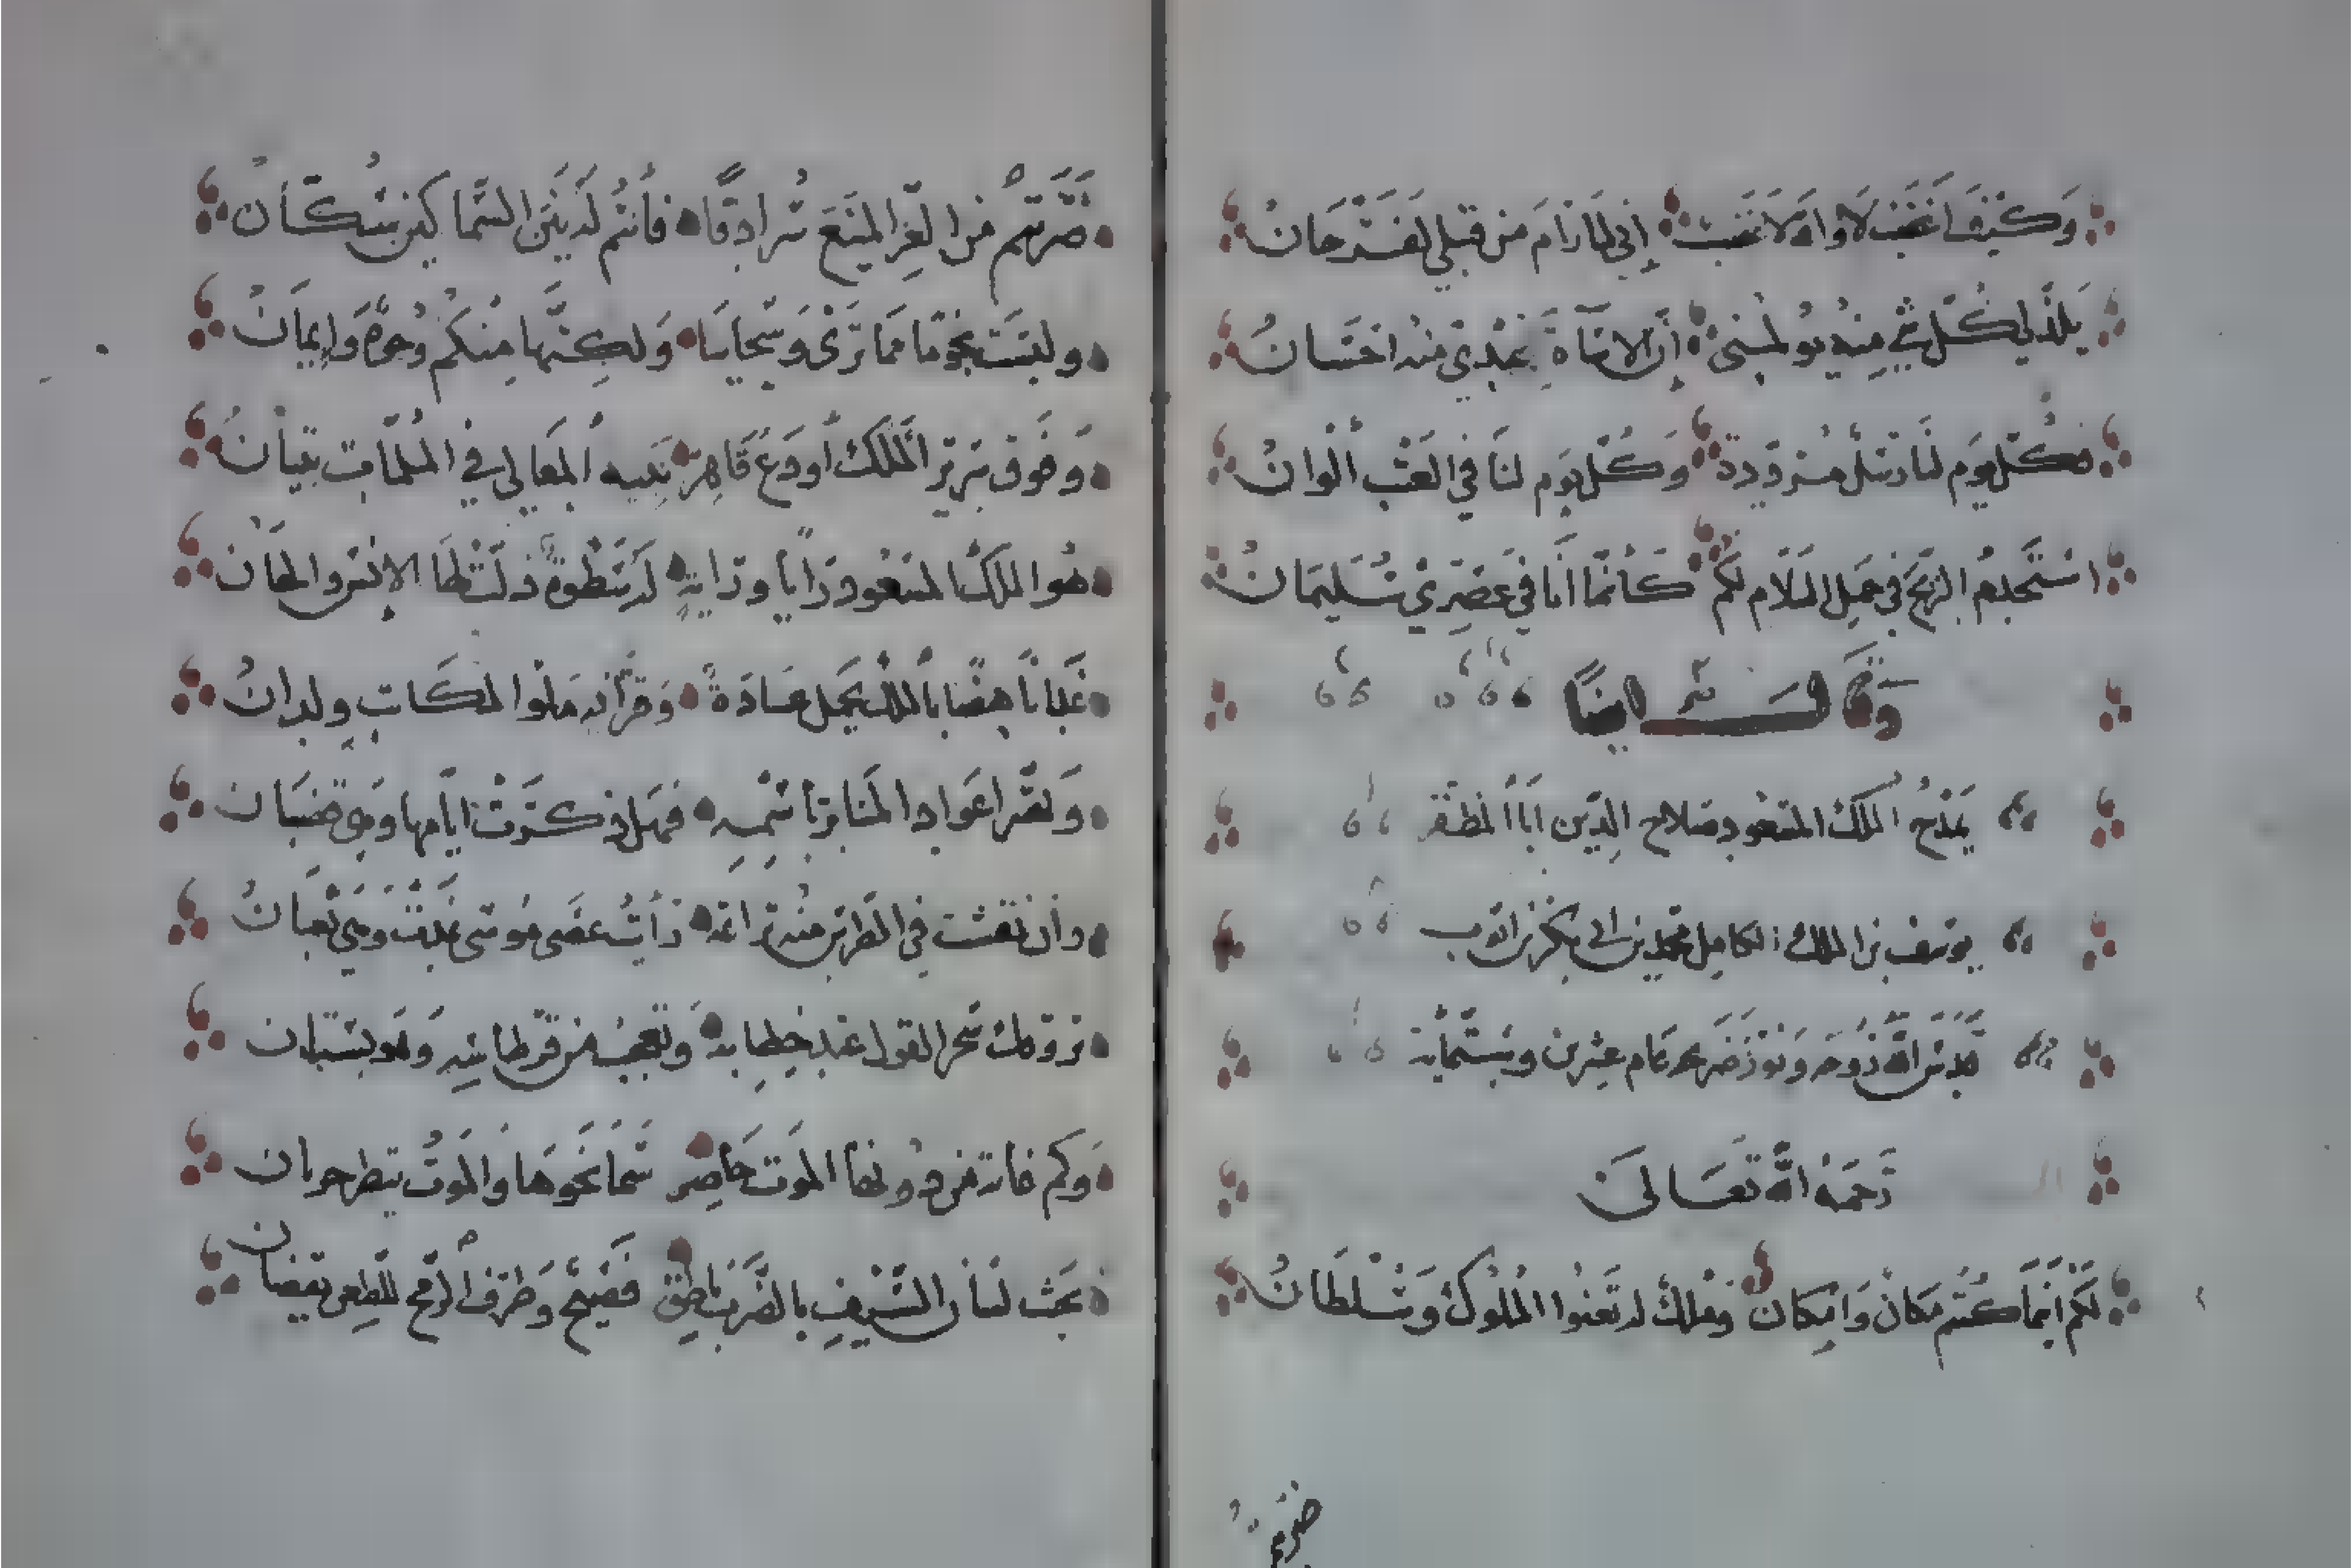 وَكَيْفَ اعْتِبُ لَا وَاللهِ لَا عَتِبَتْ إِنِّي لِمَا رَامَ مِنْ قَتْلِي لَفَرْحَانُ
يَلَذُّ لِي كُلُّ شَيْءٍ مِنْهُ يُؤْلِمُنِي إِنَّ الْاِسَاءَةَ عِنْدِي مِنْهُ اِحْسَانُ
فَكُلُّ يَوْمٍ لَنَا رُسْلٌ مُرَدَّدَةٌ وَكُلُّ يَوْمٍ لَنَا فِي الْعَتْبِ أَلْوَانُ
اسْتَخْدِمُ الرِّيحَ فِي حَمْلِ السَّلَامِ لَكُمْ كَأَنَّمَا أَنَا فِي عَصْرِي سُلَيْمَانُ
وَقَالَ أَيْضًا
يَمْدَحُ الْمَلِكَ الْمَسْعُودَ صَلَاحَ الدِّينِ أَبَا الْمُظَفَّرِ
يُوسُفَ بْنَ الْمَلِكِ الْكَامِلِ مُحَمَّدِ بْنِ أَبِي بَكْرِ بْنِ أَيُّوبَ
قَدَّسَ اللهُ رُوحَهُ وَنَوَّرَ ضَرِيحَهُ عَامَ عِشْرِينَ وَسِتَّمِائَةِ
رَحِمَهُ اللهُ تَعَالَى
لَكُمْ أَيْنَمَا كُنْتُمْ مَكَانٌ وَإِمْكَانُ وَمُلْكٌ لَهُ تَعْنُوا الْمُلُوكُ وَسُلْطَانُ
ضَرَبْتُمْ
ضَرَبْتُمْ مِنَ الْعِزِّ الْمَنِيعِ سُرَادِقًا فَأَنْتُمْ لَهُ بَيْنَ السِّمَاكَيْنِ سُكَّانُ
وليْسَتْ نُجُومًا مَا تَرَى وَسَحَايِبَا وَلَكِنَّهَا مِنْكُمْ وُجُوهٌ وَإِيمَانُ
وَفَوْقَ سَرِيرِ الْمُلْكِ أَرْوَعُ قَاهِرٌ نَبِيهُ الْمَعَالِي فِي الْمُلِمَّاتِ نَبْهَانُ
هُوَ الْمَلِكُ الْمَسْعُودُ رَأْيًا وَرَايَةً لَهُ سَطْوَةٌ ذَلَّتْ لَهَا الْإِنْسُ وَالْجَانُ
غَدَا نَاهِضًا بِالْمُلْكِ يَحْمِلُ عِبْأَهُ وَأَقْرَانُهُ مِلْؤُا الْمَكَاتِبِ وِلْدَانُ
وَتَهْتَزُّ اعْوَادُ الْمَنَابِرِ بِاسْمِهِ فَهَلْ ذَكَرَتْ أَيَّامَهَا وَهِيَ قُضْبَانُ
وَإِنْ نَفَثَتْ فِي الطِّرْسِ مِنْهُ يَرَاعَةٌ رَأَيْتُ عَصَى مُوسَى غَدَتْ وَهِيَ ثُعْبَانُ
يَرُوقُكَ سِحْرُ الْقَوْلِ عِنْدَ خِطَابِهِ وَتَعْجَبُ مِنْ قِرْطَاسِهِ وَهُوَ بُسْتَانُ
وَكَمْ غَايَةٍ مِنْ دُونِهَا الْمَوْتُ حَاضِرٌ سَمَا نَحْوَهَا وَالْمَوْتُ يَنْظُرُ خَزْيَانُ
بِحَيْثُ لِسَانُ السَّيْفِ بِالضَّرْبِ نَاطِقٌ فَصِيحٌ وَطَرْفُ الرُّمْحِ لِلطَّعْنِ يَقْظَانُ